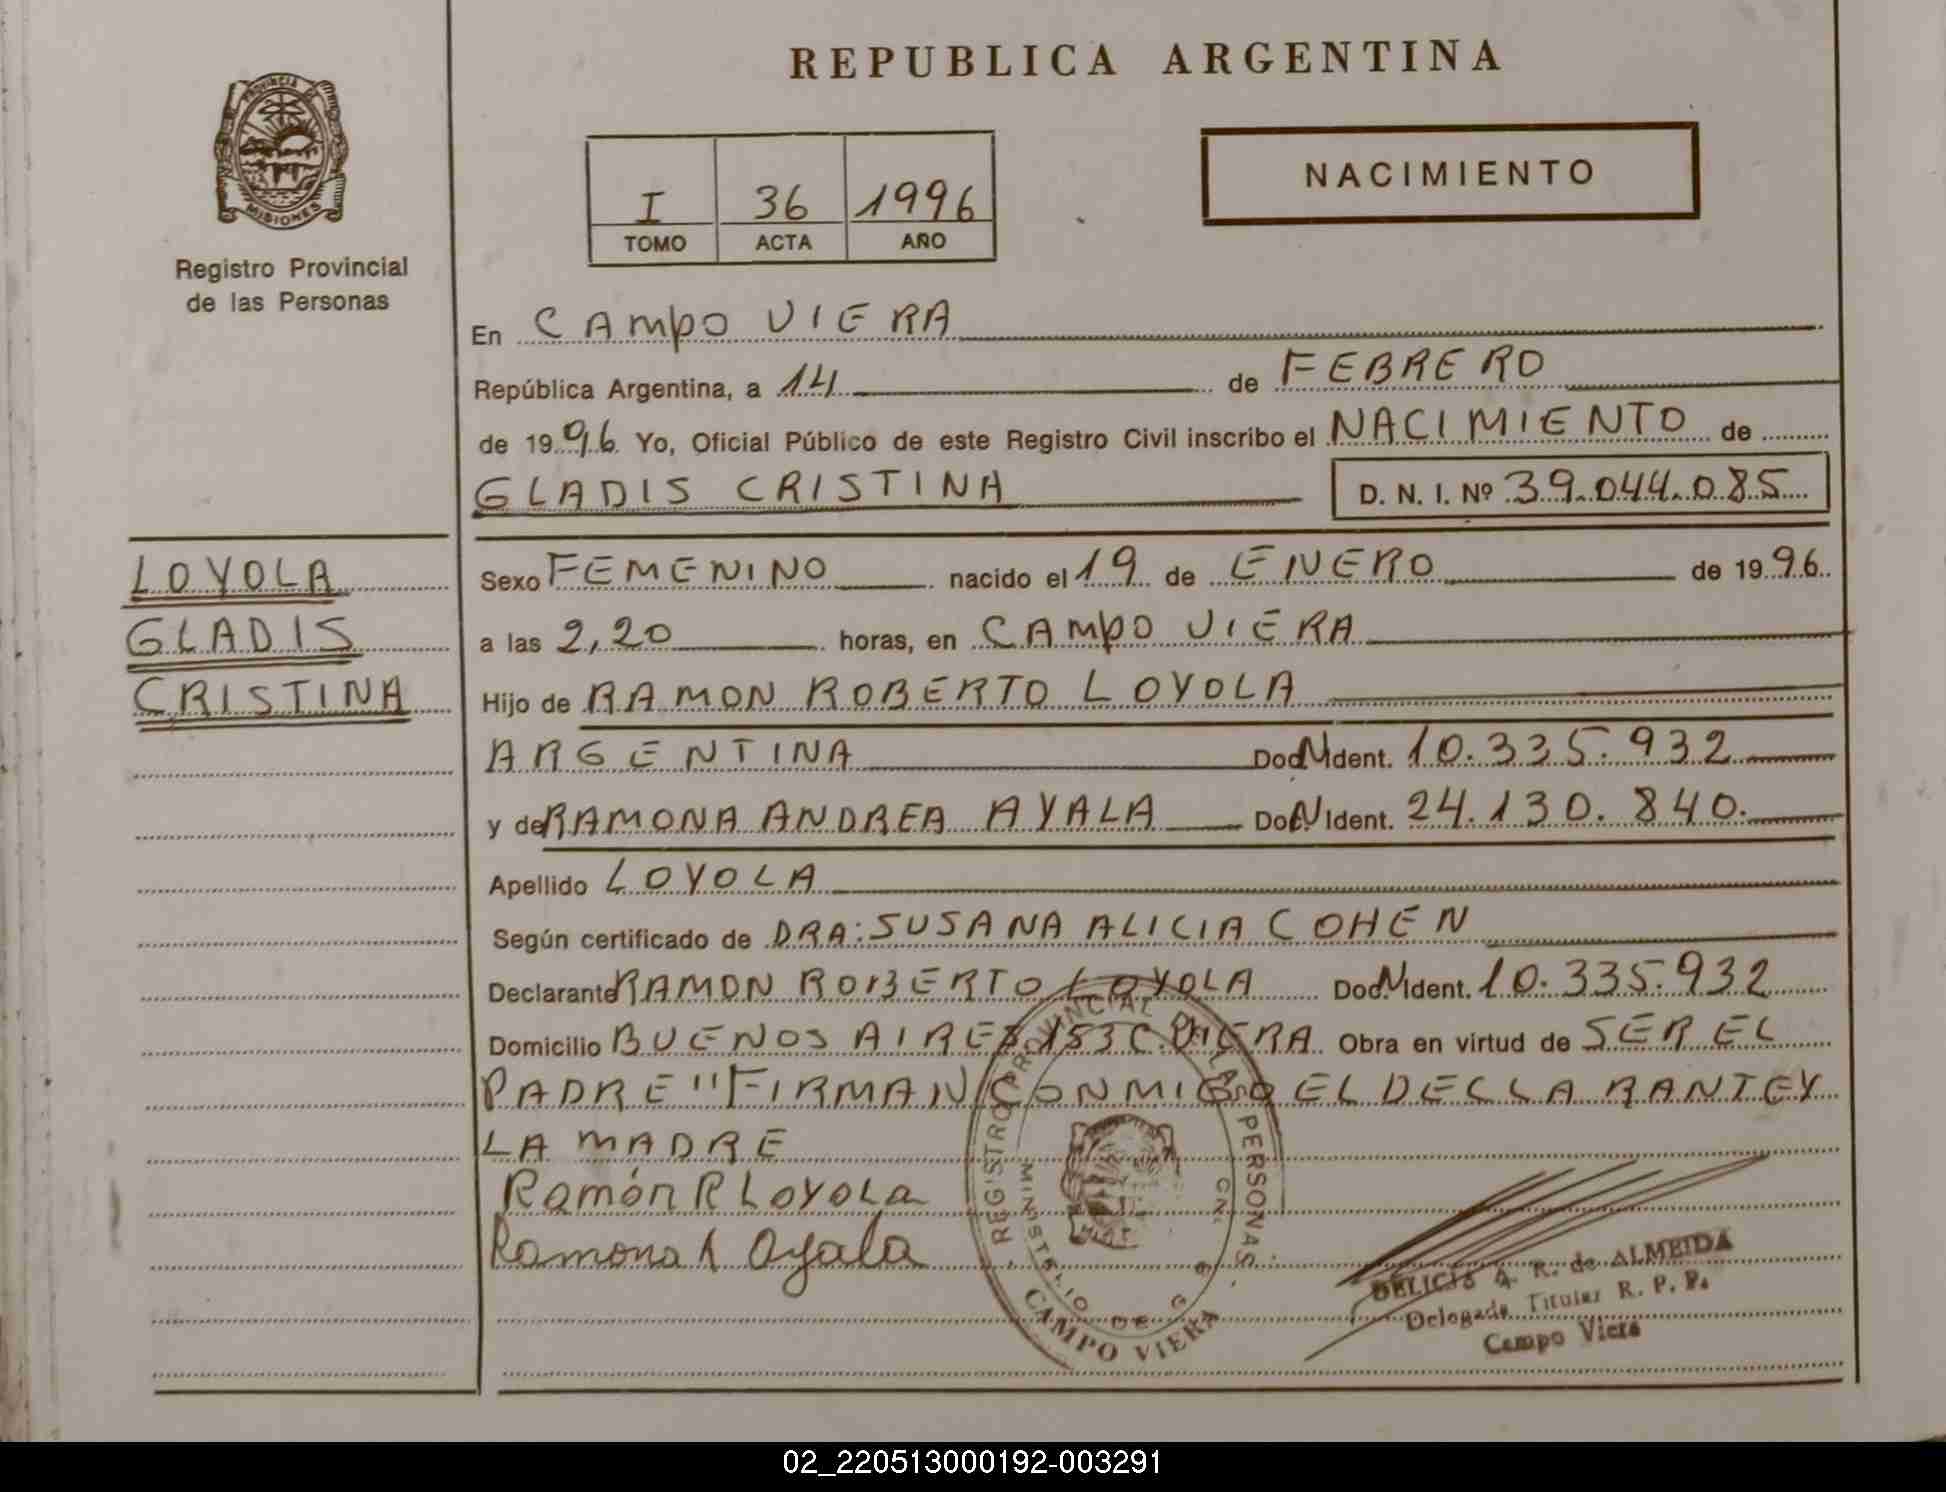 REPUBLICA ARGENTINA
PROVINCIA DE
MISIONES
Registro Provincial
de las Personas
I 36 1996
TOMO ACTA AÑO
NACIMIENTO
En CAMPO VIERA
República Argentina, a 14 de FEBRERO
de 1996 Yo, Oficial Público de este Registro Civil inscribo el NACIMIENTO de
GLADIS CRISTINA D. N. I. Nº 39.044.085
LOYOLA
GLADIS
CRISTINA
Sexo FEMENINO nacido el 19 de ENERO de 1996
a las 2,20 horas, en CAMPO VIERA
Hijo de RAMON ROBERTO LOYOLA
ARGENTINA Doc. N Ident. 10.335.932
y de RAMONA ANDREA AYALA Doc. N Ident. 24.130.840.
Apellido LOYOLA
Según certificado de DRA: SUSANA ALICIA COHEN
Declarante RAMON ROBERTO LOYOLA Doc. N Ident. 10.335.932
Domicilio BUENOS AIRES 153 C. VIERA Obra en virtud de SER EL
PADRE "FIRMAN CONMIGO EL DECLARANTE Y
LA MADRE
Ramón R Loyola
Ramona A Ayala
REGISTRO PROVINCIAL DE LAS PERSONAS
MINISTERIO DE
CAMPO VIERA
DELICIA A. R. de ALMEIDA
Delegada Titular R. P. P.
Campo Viera
02_220513000192-003291